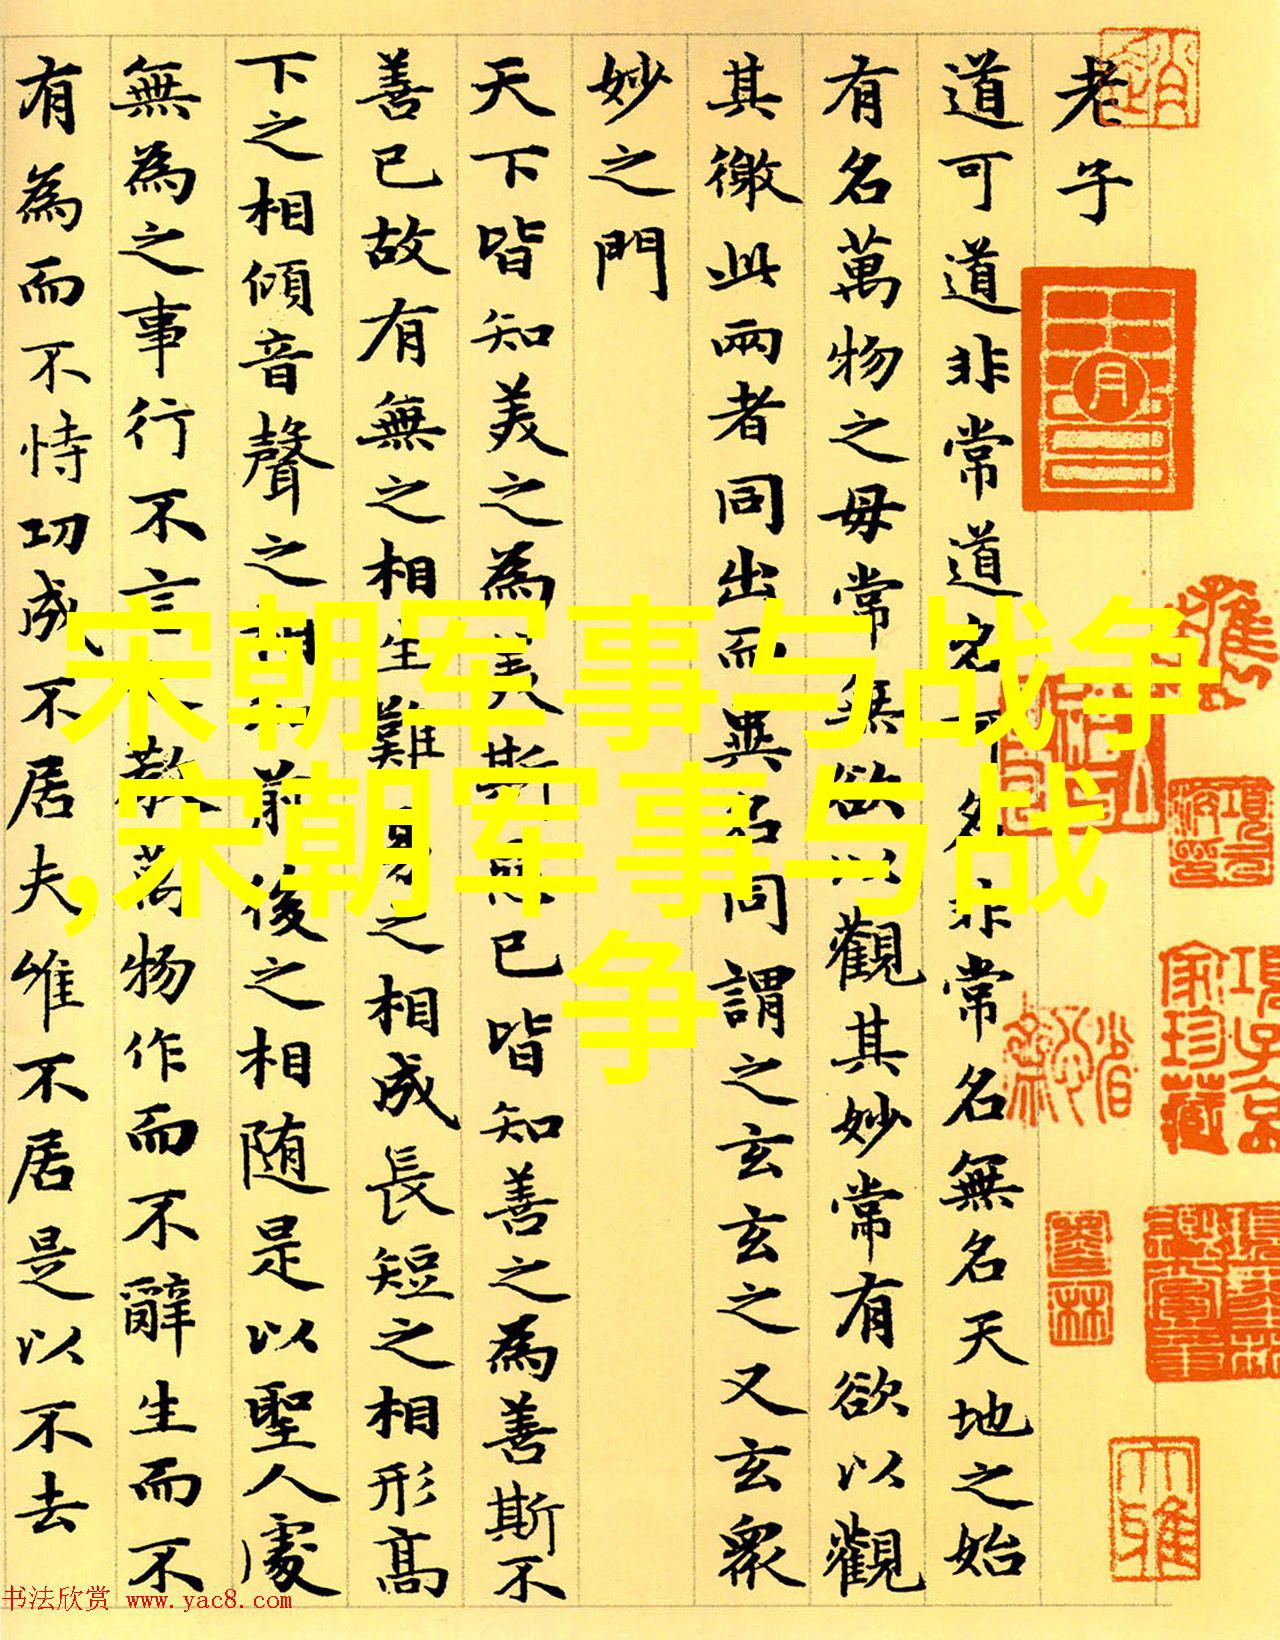 老子
道可道非常道名可名非常名無名天地之始
有名萬物之母常無欲以觀其妙常有欲以觀
其徼此兩者同出而異名同謂之玄玄之又玄眾
妙之門
天下皆知美之為美斯惡已皆知善之為善斯不
善已故有無之相生難易之相成長短之相形髙
下之相傾音聲之相和前後之相随是以聖人處
無為之事行不言之教萬物作而不辭生而不
有為而不恃功成不居夫唯不居是以不去
宋朝军事与战争
,宋朝军事与战
争
項子京
家珍藏
书法欣赏 www.yac8.com